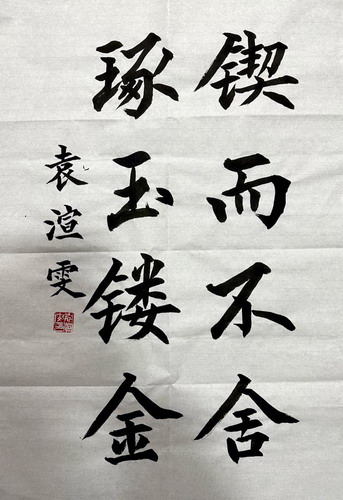 锲而不舍
琢玉镂金
袁渲雯